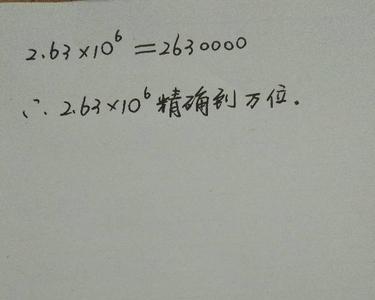 2.63×10⁶=2630000
∴ 2.63×10⁶精确到万位。